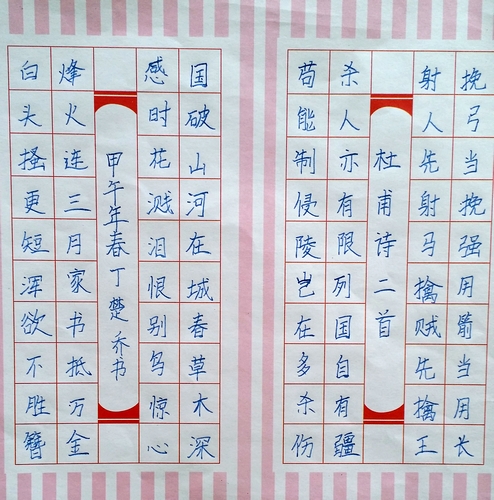 挽弓当挽强用箭当用长
射人先射马擒贼先擒王
杜甫诗二首
杀人亦有限列国自有疆
苟能制侵陵岂在多杀伤
国破山河在城春草木深
感时花溅泪恨别鸟惊心
甲午年春丁楚乔书
烽火连三月家书抵万金
白头搔更短浑欲不胜簪